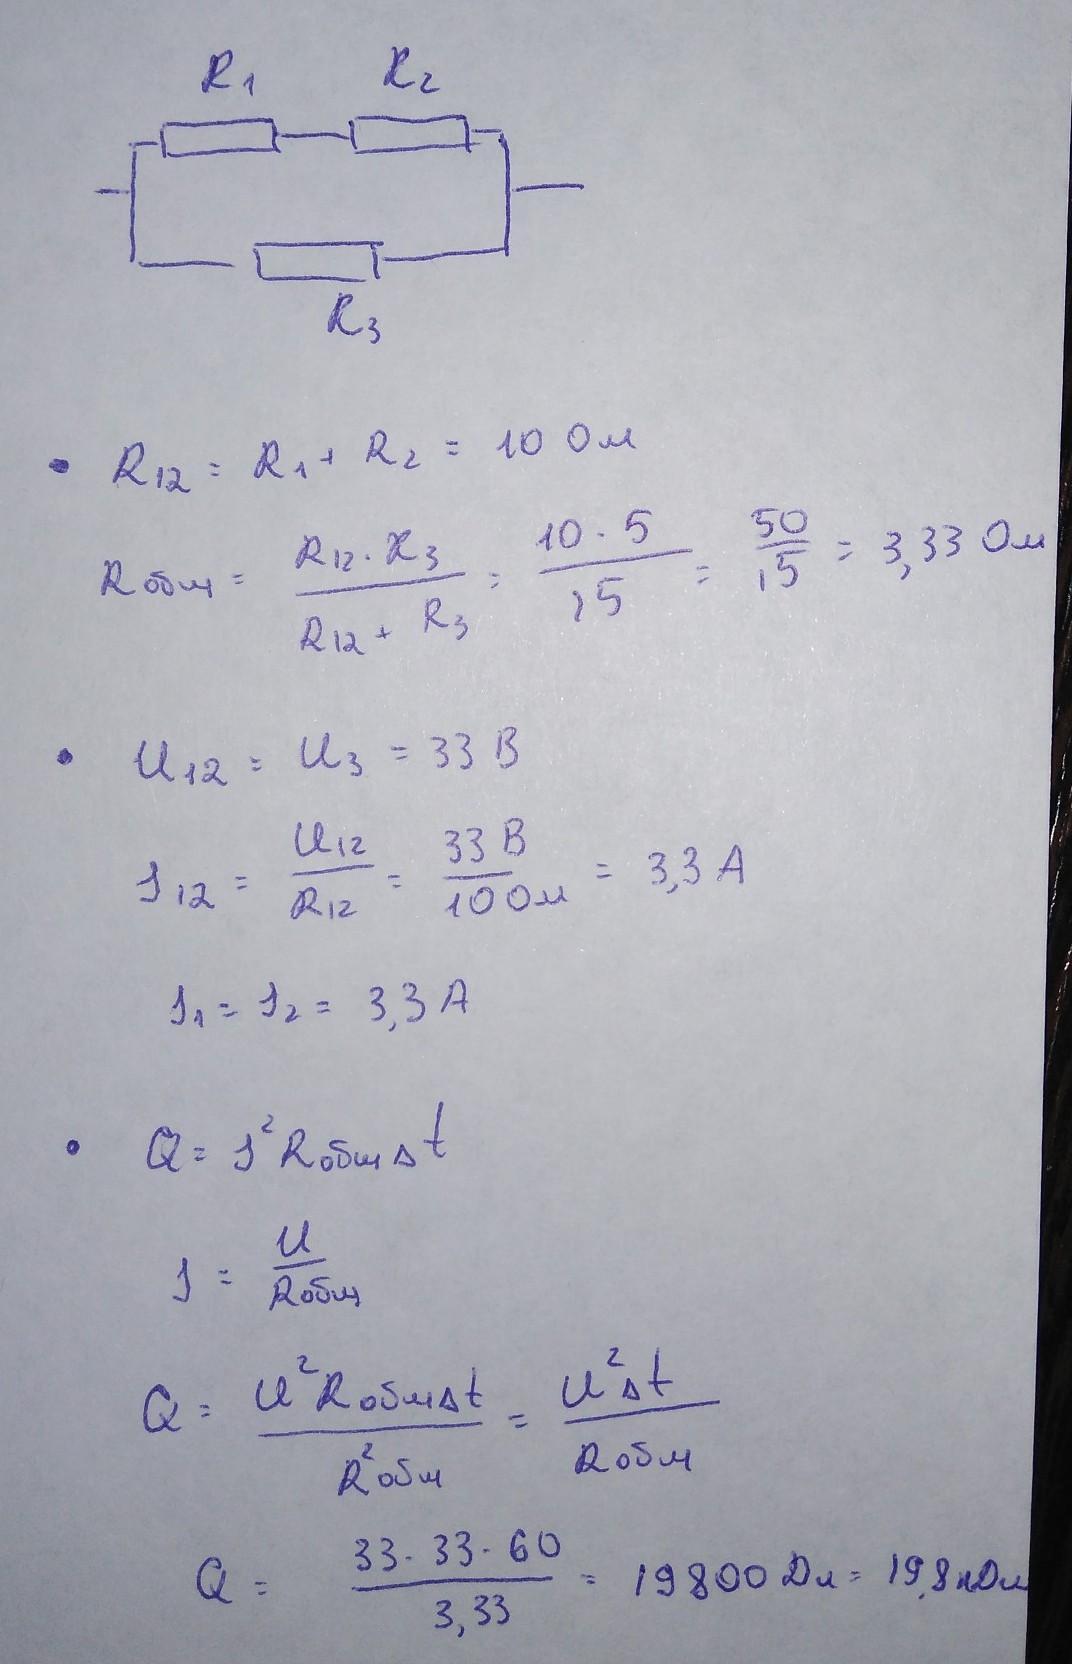 R₁ R₂
R₃
• R₁₂ = R₁ + R₂ = 10 Ом
Rобщ = (R₁₂ · R₃)/(R₁₂ + R₃) = (10 · 5)/15 = 50/15 = 3,33 Ом
• U₁₂ = U₃ = 33 В
I₁₂ = U₁₂/R₁₂ = 33 В/10 Ом = 3,3 А
I₁ = I₂ = 3,3 А
• Q = I² Rобщ Δt
I = U/Rобщ
Q = U² Rобщ Δt/R²общ = U² Δt/Rобщ
Q = (33 · 33 · 60)/3,33 = 19800 Дж = 19,8 кДж